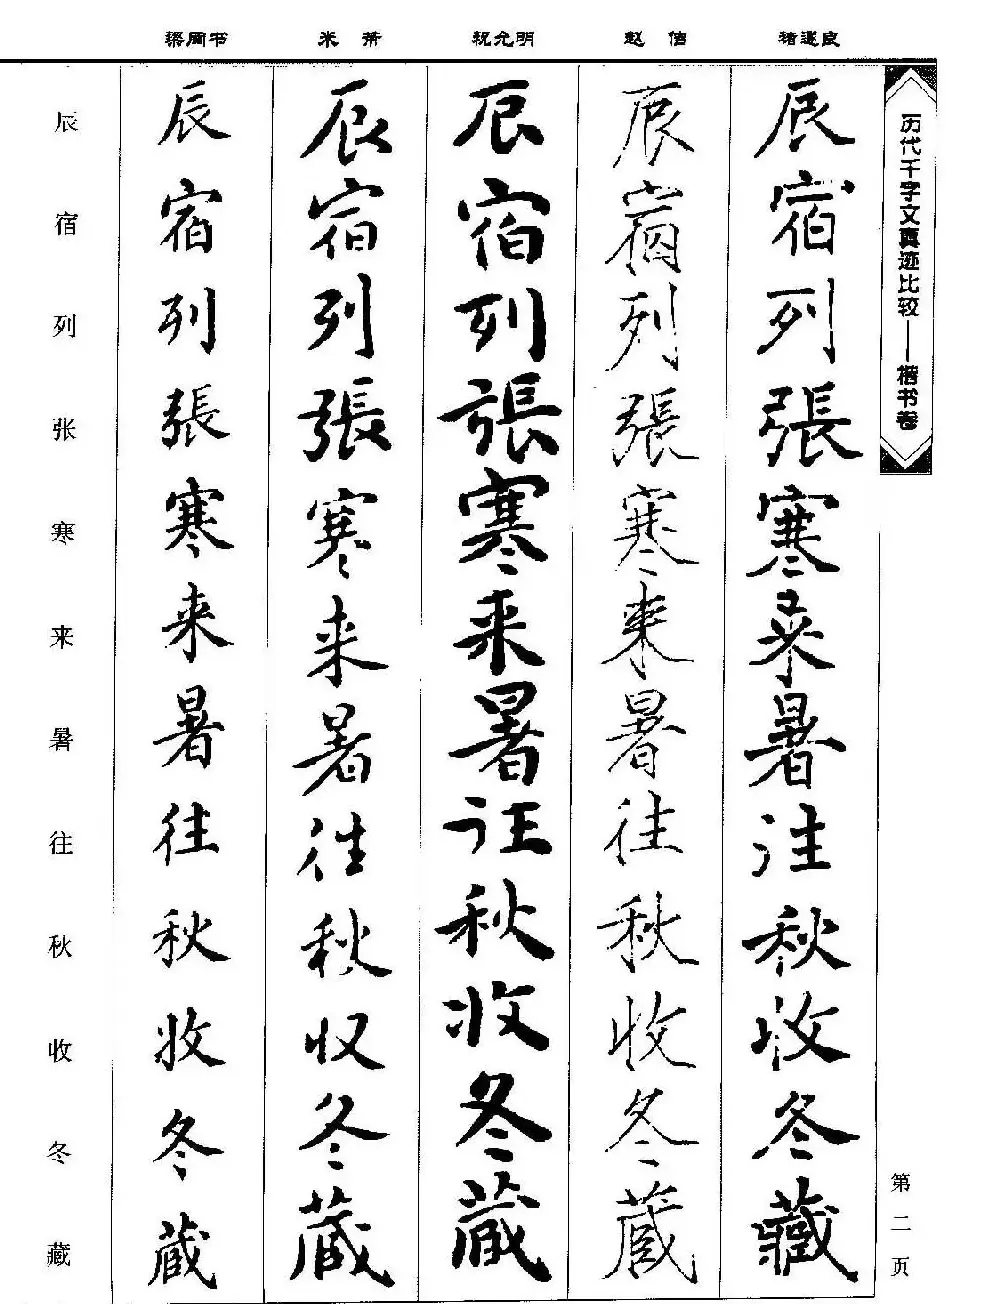 梁同书 米芾 祝允明 赵佶 褚遂良
历代千字文真迹比较——楷书卷
辰 辰 辰 辰 辰 辰
宿 宿 宿 宿 宿 宿
列 列 列 列 列 列
张 張 張 張 張 張
寒 寒 寒 寒 寒 寒
来 来 来 来 来 来
暑 暑 暑 暑 暑 暑
往 往 往 往 往 往
秋 秋 秋 秋 秋 秋
收 收 収 收 收 收
冬 冬 冬 冬 冬 冬
藏 蔵 蔵 蔵 蔵 藏
第二页